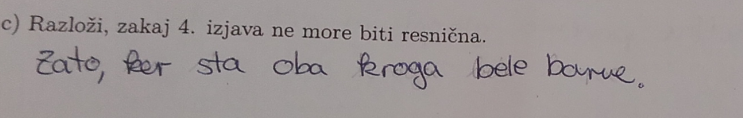 c) Razloži, zakaj 4. izjava ne more biti resnična.
Zato, ker sta oba kroga bele barve.